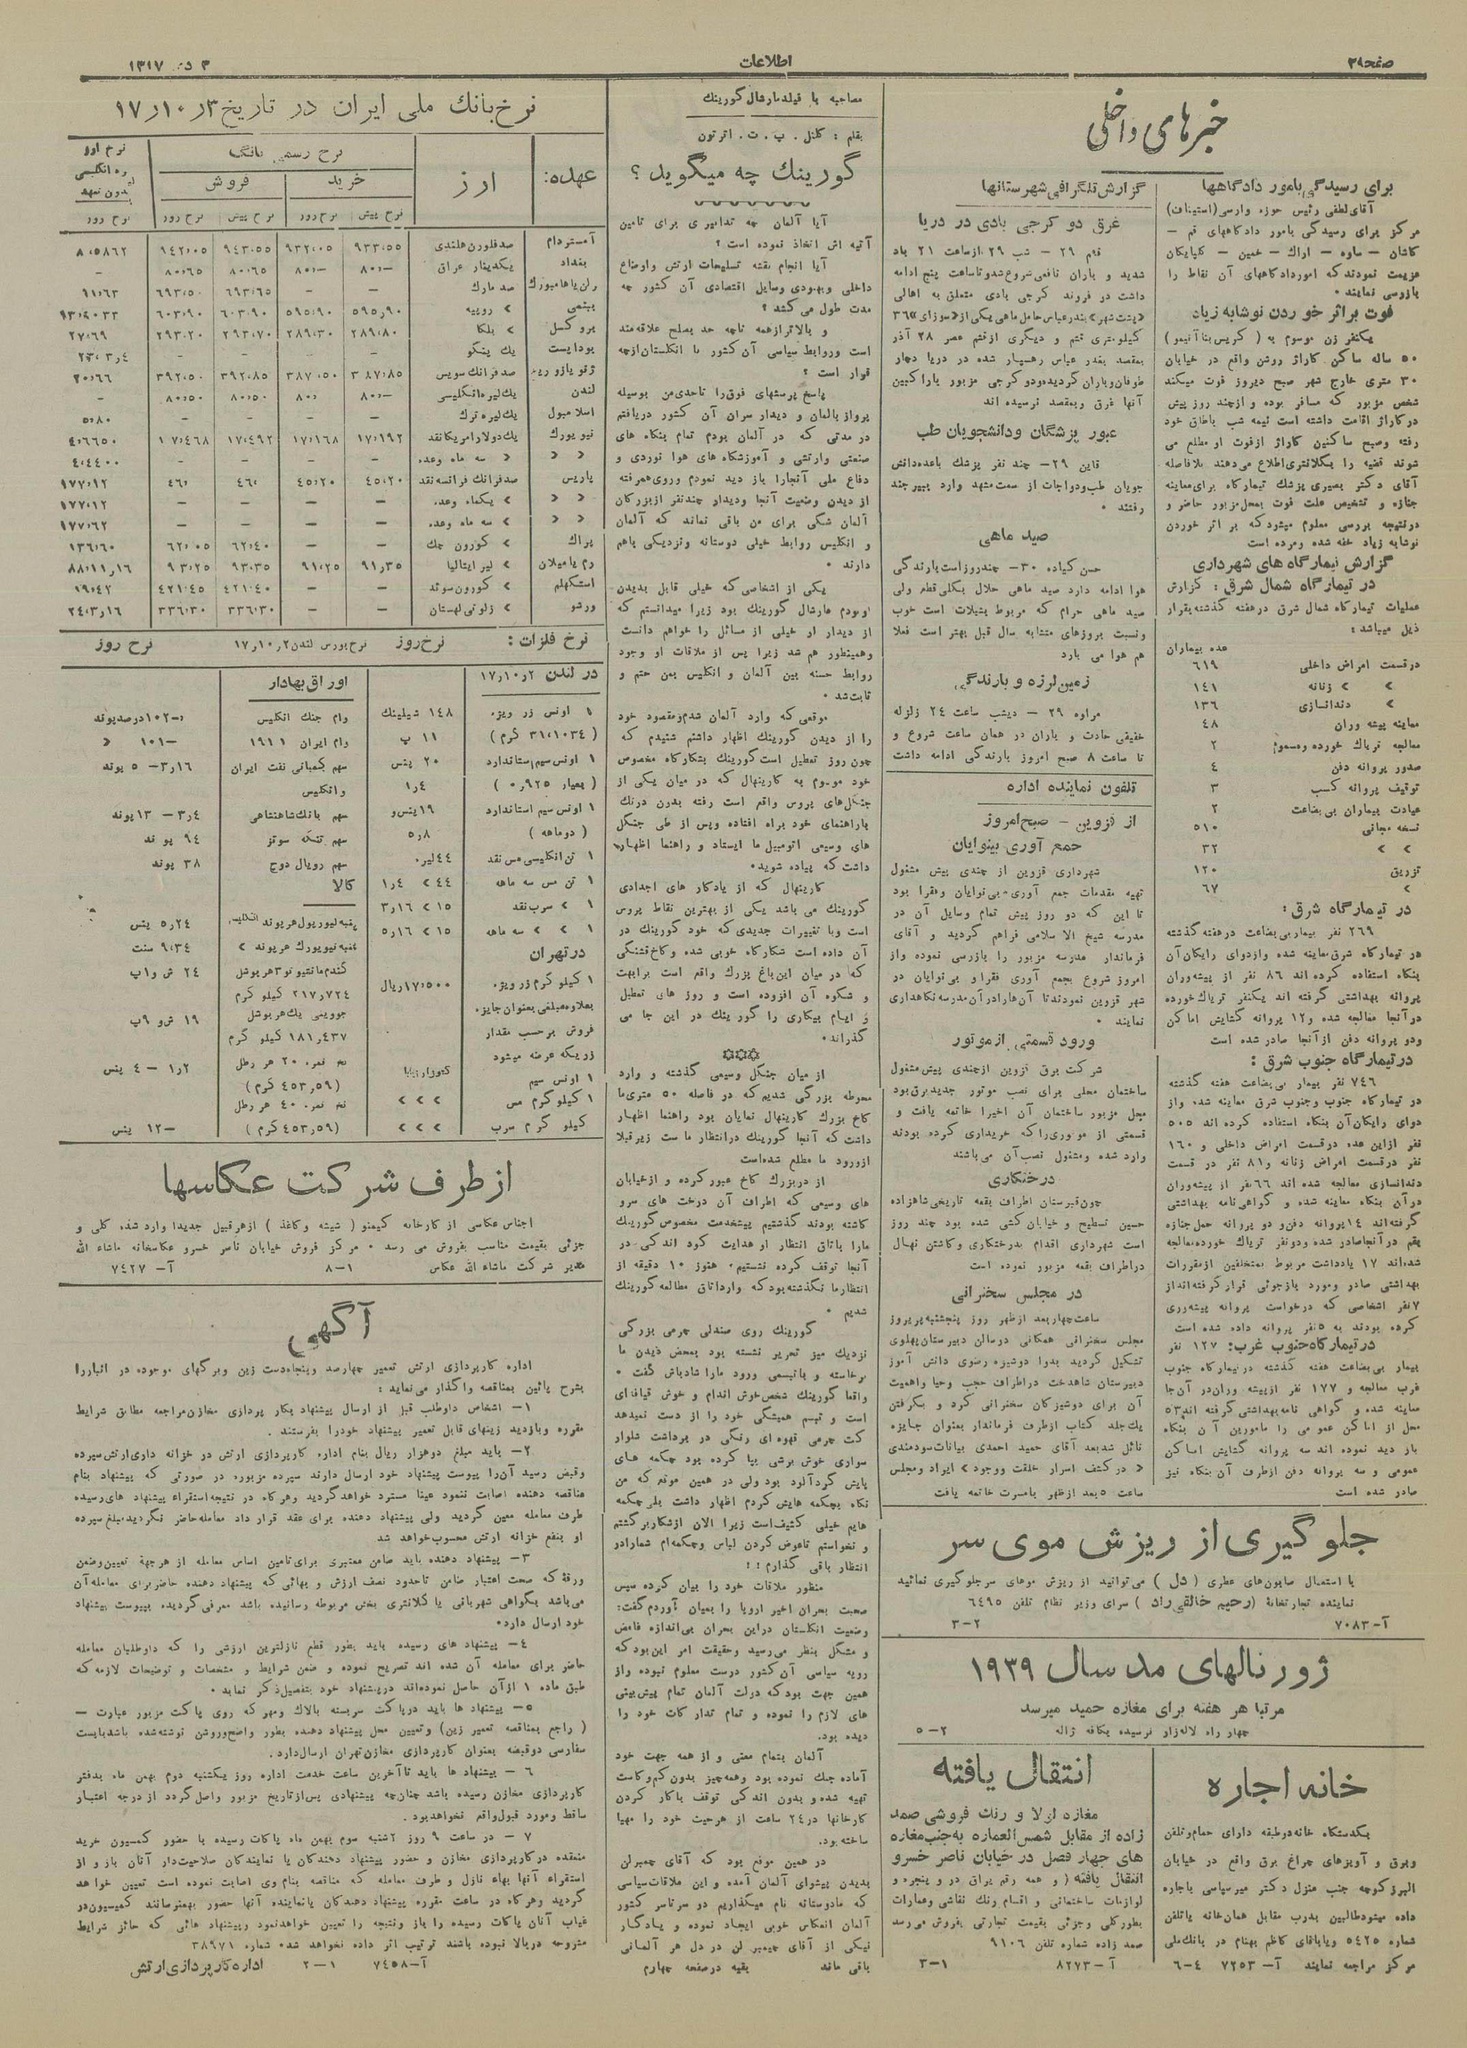 صفحه ۳۹
اطلاعات
۳ دی ۱۳۱۷
خبرهای داخلی
برای رسیدگی بامور دادگاهها
آقای لطفی رئیس حوزه وارسی (استیناف)
مرکز برای رسیدگی بامور دادگاههای قم –
کاشان – ساوه – اراک – خمین – گلپایگان
عزیمت نمودند که امور دادگاههای آن نقاط را
بازرسی نمایند.
فوت براثر خوردن نوشابه زیاد
یکنفر زن موسوم به (کریس بنا آنیمو)
۵۰ ساله ساکن گاراژ روشن واقع در خیابان
۳۰ متری خارج شهر صبح دیروز فوت میکند
شخص مزبور که مسافر بوده و از چند روز پیش
در گاراژ اقامت داشته است نیمه شب باطاق خود
رفته و صبح ساکنین گاراژ از فوت او مطلع می
شوند قضیه را بکلانتری اطلاع می دهند بلافاصله
آقای دکتر بصیری پزشک تیمارگاه برای معاینه
جنازه و تشخیص علت فوت بمحل مزبور حاضر و
در نتیجه بررسی معلوم میشود که بر اثر خوردن
نوشابه زیاد خفه شده و مرده است
گزارش تیمارگاه های شهرداری
در تیمارگاه شمال شرق : گزارش
عملیات تیمارگاه شمال شرق در هفته گذشته بقرار
ذیل میباشد :
عده بیماران
در قسمت امراض داخلی ۶۱۹
» » زنانه ۱۴۱
» دندانسازی ۱۳۶
معاینه پیشه وران ۴۸
معالجه تریاک خورده و مسموم ۲
صدور پروانه دفن ۴
توقیف پروانه کسب ۳
عیادت بیماران بی بضاعت ۲
نسخه مجانی ۵۱۰
» » ۳۲
تزریق ۱۲۰
» ۶۷
در تیمارگاه شرق :
۲۶۹ نفر بیمار بی بضاعت در هفته گذشته
در تیمارگاه شرق معاینه شده و از دوای رایگان آن
بنگاه استفاده کرده اند ۸۶ نفر از پیشه وران
پروانه بهداشتی گرفته اند یکنفر تریاک خورده
در آنجا معالجه شده و ۱۲ پروانه گشایش اماکن
و دو پروانه دفن از آنجا صادر شده است
در تیمارگاه جنوب شرق :
۷۴۶ نفر بیمار بی بضاعت هفته گذشته
در تیمارگاه جنوب و جنوب شرق معاینه شده و از
دوای رایگان آن بنگاه استفاده کرده اند ۵۰۵
نفر از این عده در قسمت امراض داخلی و ۱۶۰
نفر در قسمت امراض زنانه و ۸۱ نفر در قسمت
دندانسازی معالجه شده اند ۶۶ نفر از پیشه وران
در آن بنگاه معاینه شده و گواهی نامه بهداشتی
گرفته اند ۱۴ پروانه دفن و دو پروانه حمل جنازه
بقم در آنجا صادر شده و دو نفر تریاک خورده معالجه
شده اند ۱۷ یادداشت مربوط بمتخلفین از مقررات
بهداشتی صادر و مورد بازجوئی قرار گرفته اند از
۷ نفر اشخاصی که درخواست پروانه پیشه وری
کرده بودند به ۵ نفر پروانه داده شده است
در تیمارگاه جنوب غرب: ۱۲۷ نفر
بیمار بی بضاعت هفته گذشته در تیمارگاه جنوب
غرب معالجه و ۱۷۷ نفر از پیشه وران در آن جا
معاینه شده و گواهی نامه بهداشتی گرفته اند ۵۳
محل از اماکن عمومی را مامورین آن بنگاه
باز دید نموده اند سه پروانه گشایش اماکن
عمومی و سه پروانه دفن از طرف آن بنگاه نیز
صادر شده است
گزارش تلگرافی شهرستانها
غرق دو کرجی بادی در دریا
قشم ۲۹ – شب ۲۹ از ساعت ۲۱ باد
شدید و باران نافعی شروع شد و تا ساعت پنج ادامه
داشت دو فروند کرجی بادی متعلق به اهالی
«پشت شهر» بندر عباس حامل ماهی یکی از «سوزای» ۳۶
کیلومتری قشم و دیگری از قشم عصر ۲۸ آذر
بمقصد بندر عباس رهسپار شده در دریا دچار
طوفان و باران گردیده و دو کرجی مزبور با راکبین
آنها غرق و بمقصد نرسیده اند
عبور پزشگان و دانشجویان طب
قاین ۲۹– چند نفر پزشک با عده دانش
جویان طب و دواجات از سمت مشهد وارد و بیرجند
رفتند .
صید ماهی
حسن کیاده ۳۰– چند روز است بارندگی
هوا ادامه دارد صید ماهی حلال بکلی قطع ولی
صید ماهی حرام که مربوط بشیلات است خوب
و نسبت بروزهای مشابه سال قبل بهتر است فعلا
هم هوا می بارد
زمین لرزه و بارندگی
مراوه ۲۹ – دیشب ساعت ۲۴ زلزله
خفیفی حادث و باران در همان ساعت شروع و
تا ساعت ۸ صبح امروز بارندگی ادامه داشت
تلفون نماینده اداره
از قزوین – صبح امروز
جمع آوری بینوایان
شهرداری قزوین از چندی پیش مشغول
تهیه مقدمات جمع آوری بی نوایان و فقرا بود
تا این که دو روز پیش تمام وسایل آن در
مدرسه شیخ الاسلامی فراهم گردید و آقای
فرماندار مدرسه مزبور را بازرسی نموده و از
امروز شروع بجمع آوری فقرا و بی نوایان در
شهر قزوین نمودند تا آن ها را در آن مدرسه نگاهداری
نمایند .
ورود قسمتی از موتور
شرکت برق قزوین از چندی پیش مشغول
ساختمان محلی برای نصب موتور جدید برق بود
محل مزبور ساختمان آن اخیرا خاتمه یافت و
قسمتی از موتوری را که خریداری کرده بودند
وارد شده و مشغول نصب آن می باشند
درختکاری
چون قبرستان اطراف بقعه تاریخی شاهزاده
حسین تسطیح و خیابان کشی شده بود چند روز
است شهرداری اقدام بدرختکاری و کاشتن نهال
در اطراف بقعه مزبور نموده است
در مجلس سخنرانی
ساعت چهار بعد از ظهر روز پنجشنبه پریروز
مجلس سخنرانی همگانی در سالن دبیرستان پهلوی
تشکیل گردید بدوا دوشیزه رضوی دانش آموز
دبیرستان شاهدخت در اطراف حجب و حیا و اهمیت
آن برای دوشیزگان سخنرانی کرد و بگرفتن
یک جلد کتاب از طرف فرماندار بعنوان جایزه
نائل شد بعد آقای حمید احمدی بیانات سودمندی
« در کشف اسرار خلقت و وجود » ایراد و مجلس
ساعت ۵ بعد از ظهر با مسرت خاتمه یافت
جلوگیری از ریزش موی سر
با استعمال صابون های عطری ( دل ) می توانید از ریزش موهای سر جلوگیری نمائید
نماینده تجارتخانهٔ (رحیم خالقی راد) سرای وزیر نظام تلفن ۶۴۹۵
آ–۷۰۸۳ ۲–۳
ژورنالهای مد سال ۱۹۳۹
مرتبا هر هفته برای مغازه حمید میرسد
چهار راه لاله زار نرسیده بکافه ژاله ۲–۵
خانه اجاره
یکدستگاه خانه در طبقه دارای حمام و تلفن
و برق و آویزهای چراغ برق واقع در خیابان
البرز کوچه جنب منزل دکتر میرسپاسی باجاره
داده میشود طالبین بدرب مقابل همان خانه یا تلفن
شماره ۵۴۲۵ و یا باقای کاظم بهنام در بانک ملی
مرکز مراجعه نمایند آ– ۷۲۵۳ ۴–۶
انتقال یافته
مغازه لولا و رنگ فروشی صمد
زاده از مقابل شمس العماره به جنب مغازه
های چهار فصل در خیابان ناصر خسرو
انتقال یافته ( و همه رقم یراق در و پنجره و
لوازمات ساختمانی و اقسام رنگ نقاشی و عمارات
بطور کلی و جزئی بقیمت تجارتی بفروش می رسد
صمد زاده شماره تلفن ۹۱۰۶
آ – ۸۲۷۳ ۱–۳
مصاحبه با فیلدمارشال گورینک
بقلم : کلنل . پ . ت . اترتون
گورینک چه میگوید ؟
آیا آلمان چه تدابیری برای تامین
آتیه اش اتخاذ نموده است ؟
آیا انجام نقشه تسلیحات ارتش و اوضاع
داخلی و بهبودی وسایل اقتصادی آن کشور چه
مدت طول می کشد ؟
و بالاتر از همه تا چه حد بصلح علاقه مند
است و روابط سیاسی آن کشور با انگلستان از چه
قرار است ؟
پاسخ پرسشهای فوق را تا حدی من بوسیله
پرواز بالمان و دیدار سران آن کشور دریافتم
در مدتی که در آلمان بودم تمام بنگاه های
صنعتی و ارتشی و آموزشگاه های هوا نوردی و
دفاع ملی آنجا را باز دید نمودم و روی همرفته
از دیدن وضعیت آنجا و دیدار چند نفر از بزرگان
آلمان شکی برای من باقی نماند که آلمان
و انگلیس روابط خیلی دوستانه و نزدیکی باهم
دارند .
یکی از اشخاصی که خیلی قابل بدیدن
بودم مارشال گورینک بود زیرا میدانستم که
از دیدار او خیلی از مسائل را خواهم دانست
و همینطور هم شد زیرا پس از ملاقات او وجود
روابط حسنه بین آلمان و انگلیس بمن حتم و
ثابت شد .
موقعی که وارد آلمان شدم و مقصود خود
را از دیدن گورینک اظهار داشتم شنیدم که
چون روز تعطیل است گورینک بشکارگاه مخصوص
خود موسوم به کارینهال که در میان یکی از
جنگل های پروس واقع است رفته بدون درنگ
با راهنمای خود براه افتاده و پس از طی جنگل
های وسیعی اتومبیل ما ایستاد و راهنما اظهار
داشت که پیاده شوید .
کارینهال که از یادگار های اجدادی
گورینک می باشد یکی از بهترین نقاط پروس
است و با تغییرات جدیدی که خود گورینک در
آن داده است شکارگاه خوبی شده و کاخ قشنگی
که در میان این باغ بزرگ واقع است برابهت
و شکوه آن افزوده است و روز های تعطیل
و ایام بیکاری را گورینک در این جا می
گذراند .
از میان جنگل وسیعی گذشته و وارد
محوطه بزرگی شدیم که در فاصله ۵۰ متری ما
کاخ بزرگ کارینهال نمایان بود راهنما اظهار
داشت که آنجا گورینک در انتظار ما ست زیر قبلا
از ورود ما مطلع شده است
از در بزرگ کاخ عبور کرده و از خیابان
های وسیعی که اطراف آن درخت های سرو
کاشته بودند گذشتیم پیشخدمت مخصوص گورینک
ما را باتاق انتظار او هدایت کرد اندکی در
آنجا توقف کرده نشستیم، هنوز ۱۰ دقیقه از
انتظار ما نگذشته بود که وارد اتاق مطالعه گورینک
شدیم .
گورینک روی صندلی چرمی بزرگی
نزدیک میز تحریر نشسته بود بمحض دیدن ما
برخاسته و با تبسمی ورود ما را شادباش گفت .
واقعا گورینک شخص خوش اندام و خوش قیافه ای
است و تبسم همیشگی خود را از دست نمیدهد
کت چرمی قهوه ای رنگی در برداشت شلوار
سواری خوش برشی بپا کرده بود چکمه های
پایش گردآلود بود ولی در همین موقع که من
نگاه بچکمه هایش کردم اظهار داشت بلی چکمه
هایم خیلی کثیف است زیرا الان از شکار برگشتم
و نخواستم تا عوض کردن لباس و چکمه ام شما را در
انتظار باقی گذارم ! !
منظور ملاقات خود را بیان کرده سپس
صحبت بحران اخیر اروپا را بمیان آوردم گفت:
وضعیت انگلستان در این بحران بی اندازه غامض
و مشکل بنظر می رسید و حقیقت امر این بود که
رویه سیاسی آن کشور درست معلوم نبوده و از
همین جهت بود که دولت آلمان تمام پیش بینی
های لازم را نموده و تمام تدارکات خود را
دیده بود.
آلمان بتمام معنی و از همه جهت خود
آماده جنگ نموده بود و همه چیز بدون کم و کاست
تهیه شده و بدون اندکی توقف با کار کردن
کارخانها در ۲۴ ساعت از هر حیث خود را مهیا
ساخته بود.
در همین موقع بود که آقای چمبرلن
بدیدن پیشوای آلمان آمده و این ملاقات سیاسی
که ما دوستانه نام میگذاریم در سرتاسر کشور
آلمان انعکاس خوبی ایجاد نموده و یادگار
نیکی از آقای چمبر لن در دل هر آلمانی
باقی ماند بقیه در صفحه چهارم
نرخ بانک ملی ایران در تاریخ ۳ر۱۰ر۱۷
عهده: ارز نرخ رسمی بانک نرخ ارز
خرید فروش لیره انگلیسی بدون تعهد
نرخ پیش نرخ روز نرخ پیش نرخ روز نرخ روز
آمستردام صد فلورن هلندی ۹۳۳،۵۵ ۹۳۲،۰۵ ۹۴۳،۵۵ ۹۴۲،۰۵ ۸،۵۸۶۲
بغداد یکدینار عراق ۸۰،– ۸۰،– ۸۰،۶۵ ۸۰،۶۵ –
صد مارک – – ۶۹۳،۶۵ ۶۹۳،۵۰ ۱۱،۶۳
بمبئی » روپیه ۵۹۵،۹۰ ۵۹۵،۹۰ ۶۰۳،۹۰ ۶۰۳،۹۰
بروکسل » بلگا ۲۸۹،۸۰ ۲۸۹،۳۰ ۲۹۳،۷۰ ۲۹۳،۲۰ ۲۷،۶۹
بوداپست یک پنگو – – – –
صد فرانک سویس ۳۸۷،۸۵ ۳۸۷،۵۰ ۳۹۲،۸۵ ۳۹۲،۵۰ ۲۰،۶۶
لندن یک لیره انگلیسی ۸۰،– ۸۰،– ۸۰،۵۰ ۸۰،۵۰ –
اسلامبول یک لیره ترک ۵،۸۰
نیویورک یک دولار امریکا نقد ۱۷،۱۹۲ ۱۷،۱۶۸ ۱۷،۴۹۲ ۱۷،۴۶۸ ۴،۶۶۵۰
» » » سه ماه وعده – – – – ۴،۴۴۰۰
پاریس صد فرانک فرانسه نقد ۴۵،۲۰ ۴۵،۲۰ ۴۶، ۴۶، ۱۷۷،۱۲
» » » یکماه وعده – – – – ۱۷۷،۱۲
» » » سه ماه وعده – – – – ۱۷۷،۶۲
پراک » کورون چک – – ۶۲،۴۰ ۶۲،۰۵ ۱۳۶،۶۰
رم یا میلان » لیر ایتالیا ۹۱،۳۵ ۹۱،۲۵ ۹۳،۳۵ ۹۳،۲۵ ۸۸،۱۱ر۱۶
استکهلم » کورون سوئد – – ۴۲۱،۴۰ ۴۲۱،۴۵ ۱۹،۴۲
ورشو » زلوتی لهستان – – ۳۳۶،۳۰ ۳۳۶،۳۰ ۲۴،۳ر۱۶
نرخ فلزات : نرخ روز
در لندن ۲ر۱۰ر۱۷
۱ اونس زر ویژه ۱۴۸ شیلینگ
(۳۱،۱۰۳۴ گرم) ۱۱ پ
۱ اونس سیم استاندارد ۲۰ پنس
(بعیار ۰،۹۲۵) ۱ر۴
۱ اونس سیم استاندارد ۱۹ پنس و
(دو ماهه) ۵ر۸
۱ تن انگلیسی مس نقد ۴۴ لیره
۱ تن مس سه ماهه ۴۴ » ۱ر۴
۱ » سرب نقد ۱۵ » ۳ر۱۶
۱ » » سه ماهه ۱۵ » ۵ر۱۶
در تهران
۱ کیلوگرم زر ویژه ۱۷،۵۰۰ ریال
بعلاوه مبلغی بعنوان جایزه
فروش برحسب مقدار
زریکه عرضه میشود
۱ اونس سیم
۱ کیلو گرم مس » » »
کیلو گرم سرب » » »
نرخ بورس لندن ۲ر۱۰ر۱۷ نرخ روز
اوراق بهادار
وام جنگ انگلیس ۱۰۲–، درصد پوند
وام ایران ۱۹۱۱ ۱۰۱– »
سهم کمپانی نفت ایران ۳ر۱۶–۵ پوند
و انگلیس
سهم بانک شاهنشاهی ۳ر۴–۱۳ پوند
سهم تنکه سوئز ۹۴ پوند
سهم رویال دوچ ۳۸ پوند
کالا
پنبه لیورپول هر پوند انگلیسی ۵،۲۴ پنس
پنبه نیویورک هر پوند » ۹،۳۴ سنت
گندم مانتیو تو ۳ هر بوشل ۲۴ ش و ۱ پ
۲۱۷٫۷۲۴ کیلو گرم
جو ویمی یک هر بوشل ۱۹ ش و ۹ پ
۱۸۱٫۴۳۷ کیلو گرم
نخ نمره ۲۰ هر رطل ۱ر۲ – ۴ پنس
(۴۵۳٫۵۹ گرم)
نخ نمره ۴۰ هر رطل
(۴۵۳٫۵۹ گرم) –۱۲ پنس
از طرف شرکت عکاسها
اجناس عکاسی از کارخانه گیمنو ( شیشه و کاغذ ) از هر قبیل جدیدا وارد شده کلی و
جزئی بقیمت مناسب بفروش می رسد . مرکز فروش خیابان ناصر خسرو عکاسخانه ماشاء الله
مدیر شرکت ماشاء الله عکاس ۱–۸ آ– ۷۴۲۷
آگهی
اداره کارپردازی ارتش تعمیر چهارصد و پنجاه دست زین و برگهای موجوده در انبار را
بشرح پائین بمناقصه واگذار می نماید :
۱– اشخاص داوطلب قبل از ارسال پیشنهاد بکار پردازی مخازن مراجعه مطابق شرایط
مقرره و بازدید زینهای قابل تعمیر پیشنهاد خود را بفرستند .
۲– باید مبلغ دو هزار ریال بنام اداره کارپردازی ارتش در خزانه داری ارتش سپرده
و قبض رسید آن را پیوست پیشنهاد خود ارسال دارند سپرده مزبوره در صورتی که پیشنهاد بنام
مناقصه دهنده اصابت ننمود عینا مسترد خواهد گردید و هرگاه در نتیجه استقراء پیشنهاد های رسیده
طرف معامله معین گردید ولی پیشنهاد دهنده برای عقد قرار داد معامله حاضر نگردید مبلغ سپرده
او بنفع خزانه ارتش محسوب خواهد شد
۳– پیشنهاد دهنده باید ضامن معتبری برای تامین اساس معامله از هر جهة تعیین و ضمن
ورقهٔ که صحت اعتبار ضامن تا حدود نصف ارزش و بهائی که پیشنهاد دهنده حاضر برای معامله آن
می باشد بگواهی شهربانی یا کلانتری بخش مربوطه رسانیده باشد معرفی گردیده بپیوست پیشنهاد
خود ارسال دارد .
۴– پیشنهاد های رسیده باید بطور قطع نازلترین ارزشی را که داوطلبان معامله
حاضر برای معامله آن شده اند تصریح نموده و ضمن شرایط و مشخصات و توضیحات لازمه که
طبق ماده ۱ از آن حاصل نموده اند در پیشنهاد خود بتفصیل ذکر نماید .
۵– پیشنهاد ها باید در پاکت سربسته بالاک و مهر که روی پاکت مزبور عبارت –
( راجع بمناقصه تعمیر زین) و تعیین محل پیشنهاد دهنده بطور واضح و روشن نوشته شده باشد بایست
سفارسی دو قبضه بعنوان کارپردازی مخازن تهران ارسال دارد .
۶ – پیشنهاد ها باید تا آخرین ساعت خدمت اداره روز یکشنبه دوم بهمن ماه بدفتر
کارپردازی مخازن رسیده باشد چنان چه پیشنهادی پس از تاریخ مزبور واصل گردد از درجه اعتبار
ساقط و مورد قبول واقع نخواهد بود .
۷ – در ساعت ۹ روز ۲ شنبه سوم بهمن ماه پاکات رسیده با حضور کمسیون خرید
منعقده در کارپردازی مخازن و حضور پیشنهاد دهندگان یا نمایندگان صلاحیت دار آنان باز و از
استقراء آنها بهاء نازل و طرف معامله که مناقصه بنام وی اصابت نموده است تعیین خواهد
گردید و هرگاه در ساعت مقرره پیشنهاد دهندگان یا نماینده آنها حضور بهم نرسانند کمیسیون در
غیاب آنان پاکات رسیده را باز و نتیجه را تعیین خواهد نمود و پیشنهاد هائی که حائز شرایط
مشروحه در بالا نبوده باشند ترتیب اثر داده نخواهد شد . شماره ۳۸۹۷۱
آ–۷۴۵۸ ۱–۲ اداره کارپردازی ارتش